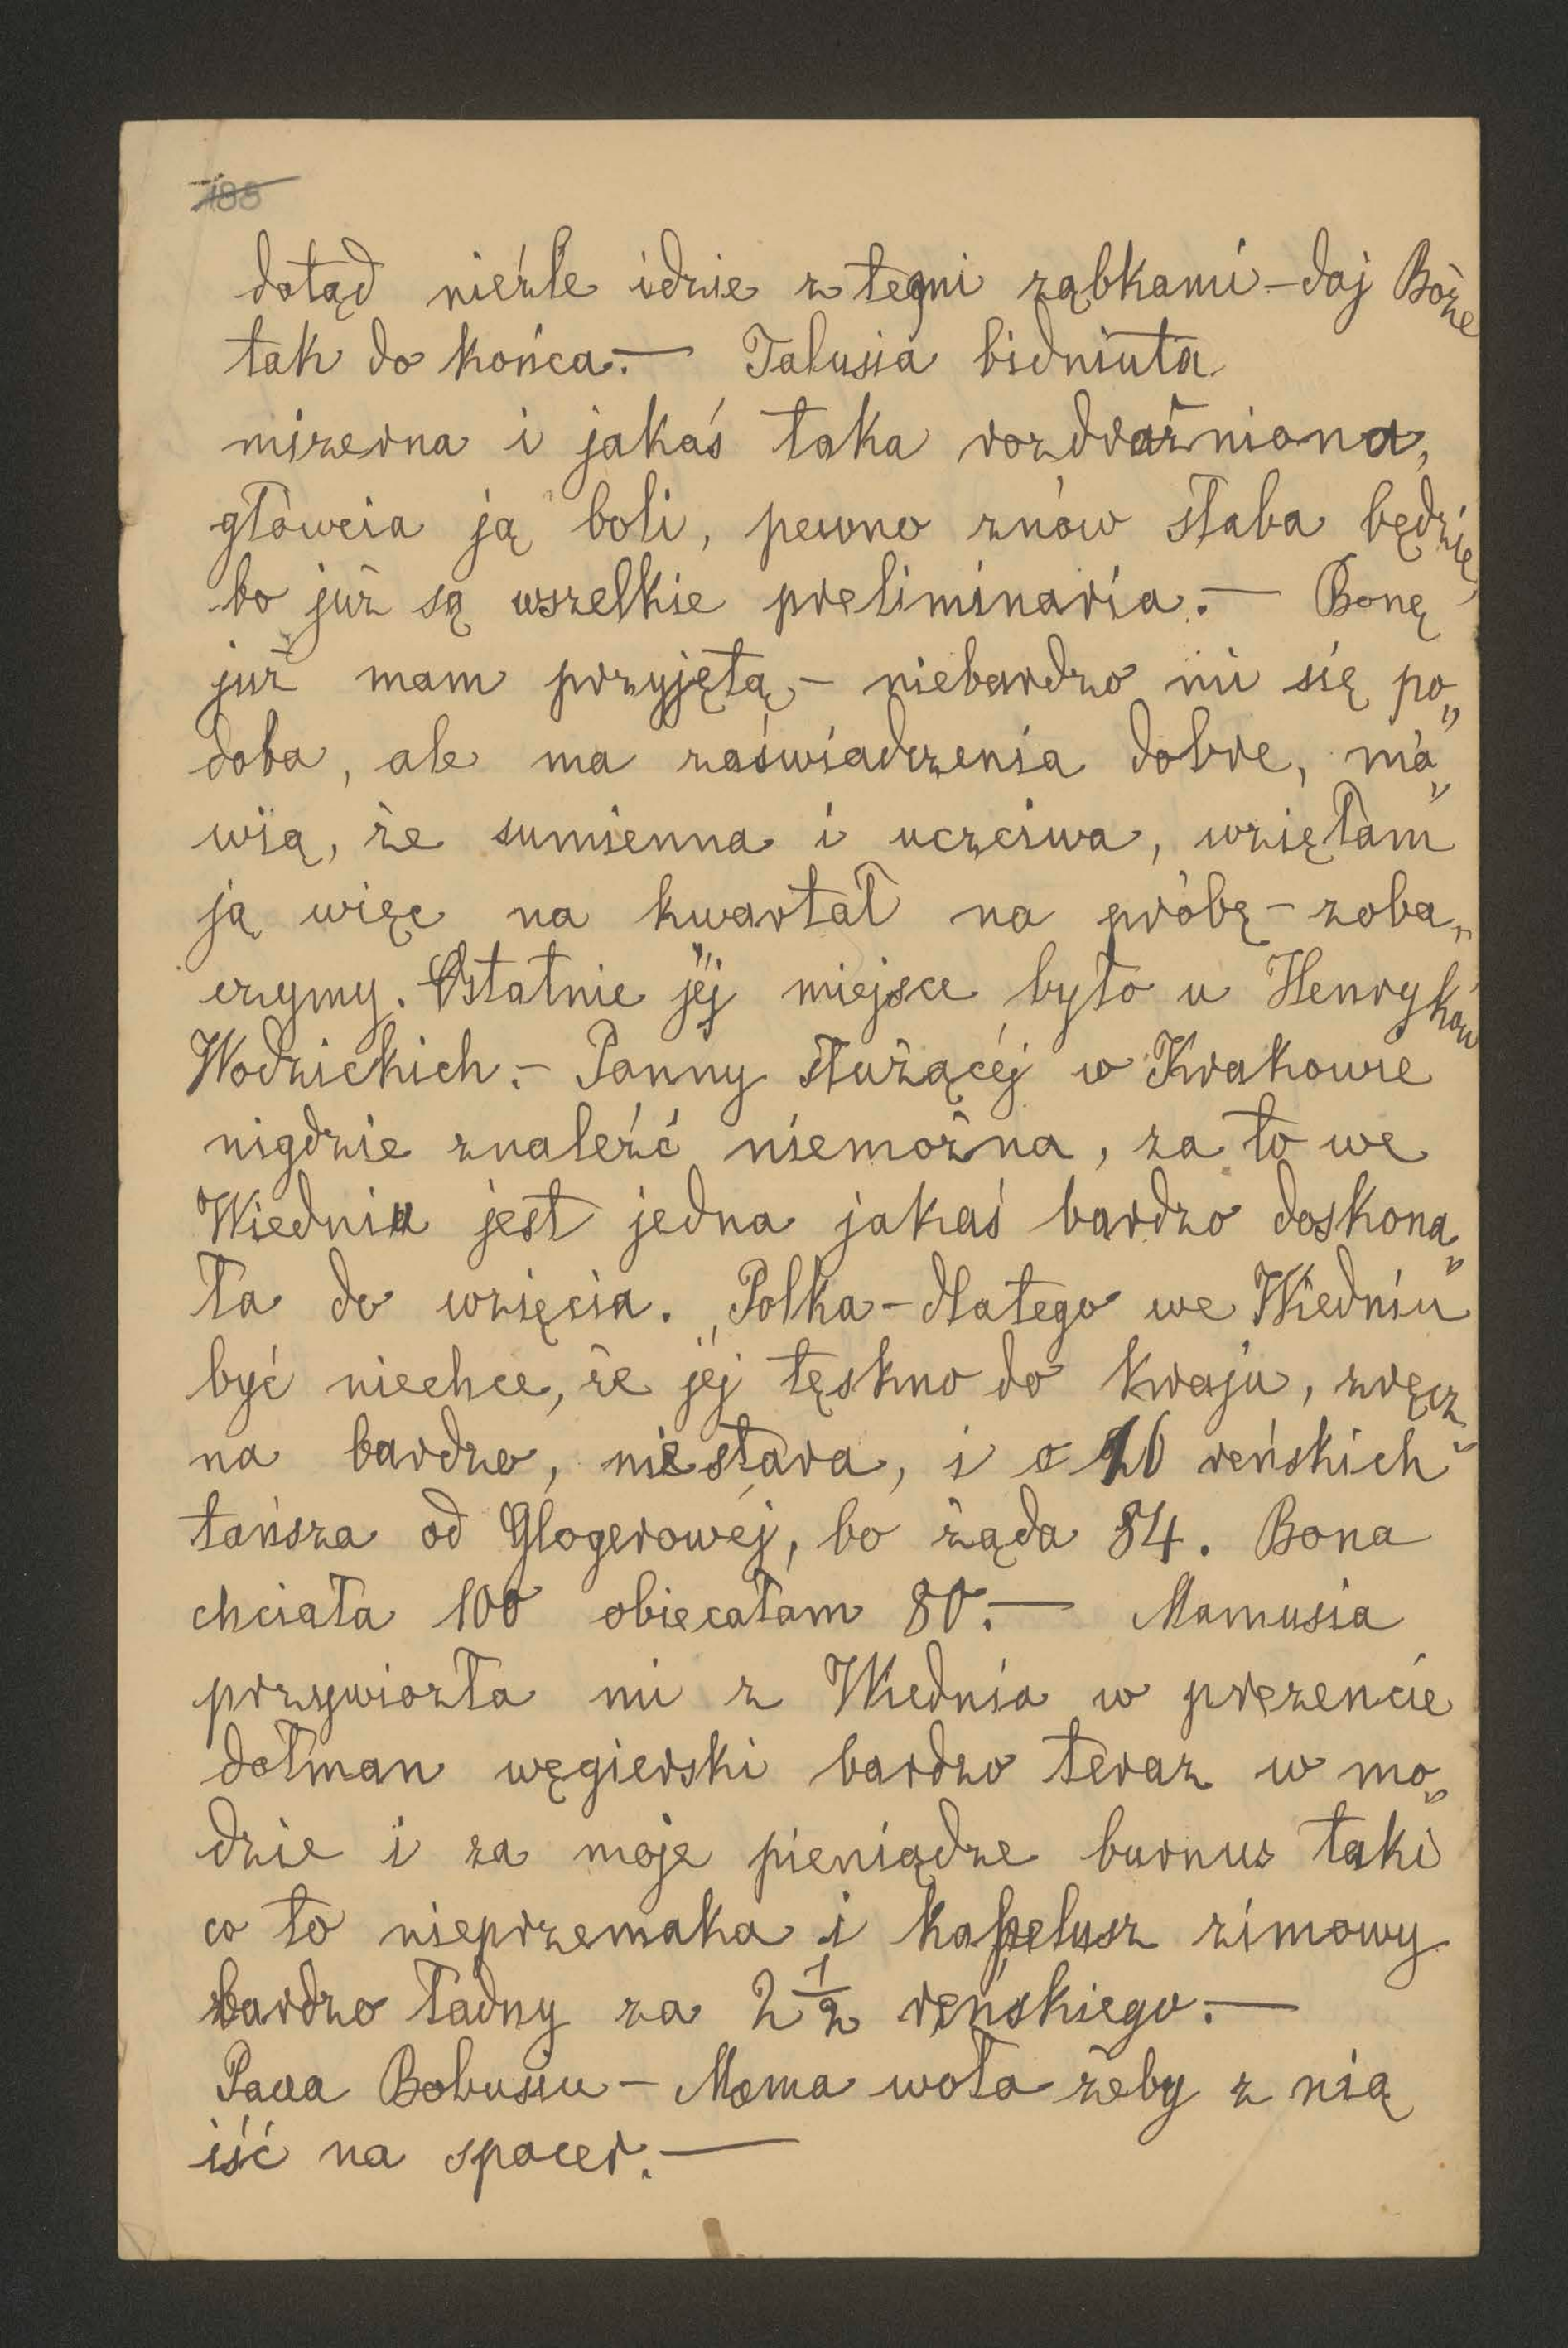 188
dotąd nieźle idzie z temi ząbkami – daj Boże
tak do końca. — Talusia bidniuta
mizerna i jakaś taka rozdrażniona,
główcia ją boli, pewno znów słaba będzie,
bo już są wszelkie preliminaria. — Bonę
już mam przyjętą, – niebardzo mi się po„
doba, ale ma zaświadczenia dobre, mó„
wią, że sumienna i uczciwa, wzięłam
ją więc na kwartał na próbę – zoba„
czymy. Ostatnie jéj miejsce było u Henryków
Wodzickich. – Panny służącéj w Krakowie
nigdzie znaleźć niemożna, za to we
Wiedniu jest jedna jakaś bardzo doskona„
ła do wzięcia. Polka – dlatego we Wiedniu
być niechce, że jéj tęskno do kraju, zręcz„
na bardzo, niestara, i o 16 reńskich
tańsza od Glogerowéj, bo żąda 84. Bona
chciała 100 obiecałam 80. — Mamusia
przywiozła mi z Wiednia w prezencie
dołman węgierski bardzo teraz w mo„
dzie i za moje pieniądze burnus taki
co to nieprzemaka i kapelusz zimowy
bardzo ładny za 2 1/2 reńskiego. —
Pava Bobusiu – Mama woła żeby z nią
iść na spacer. —